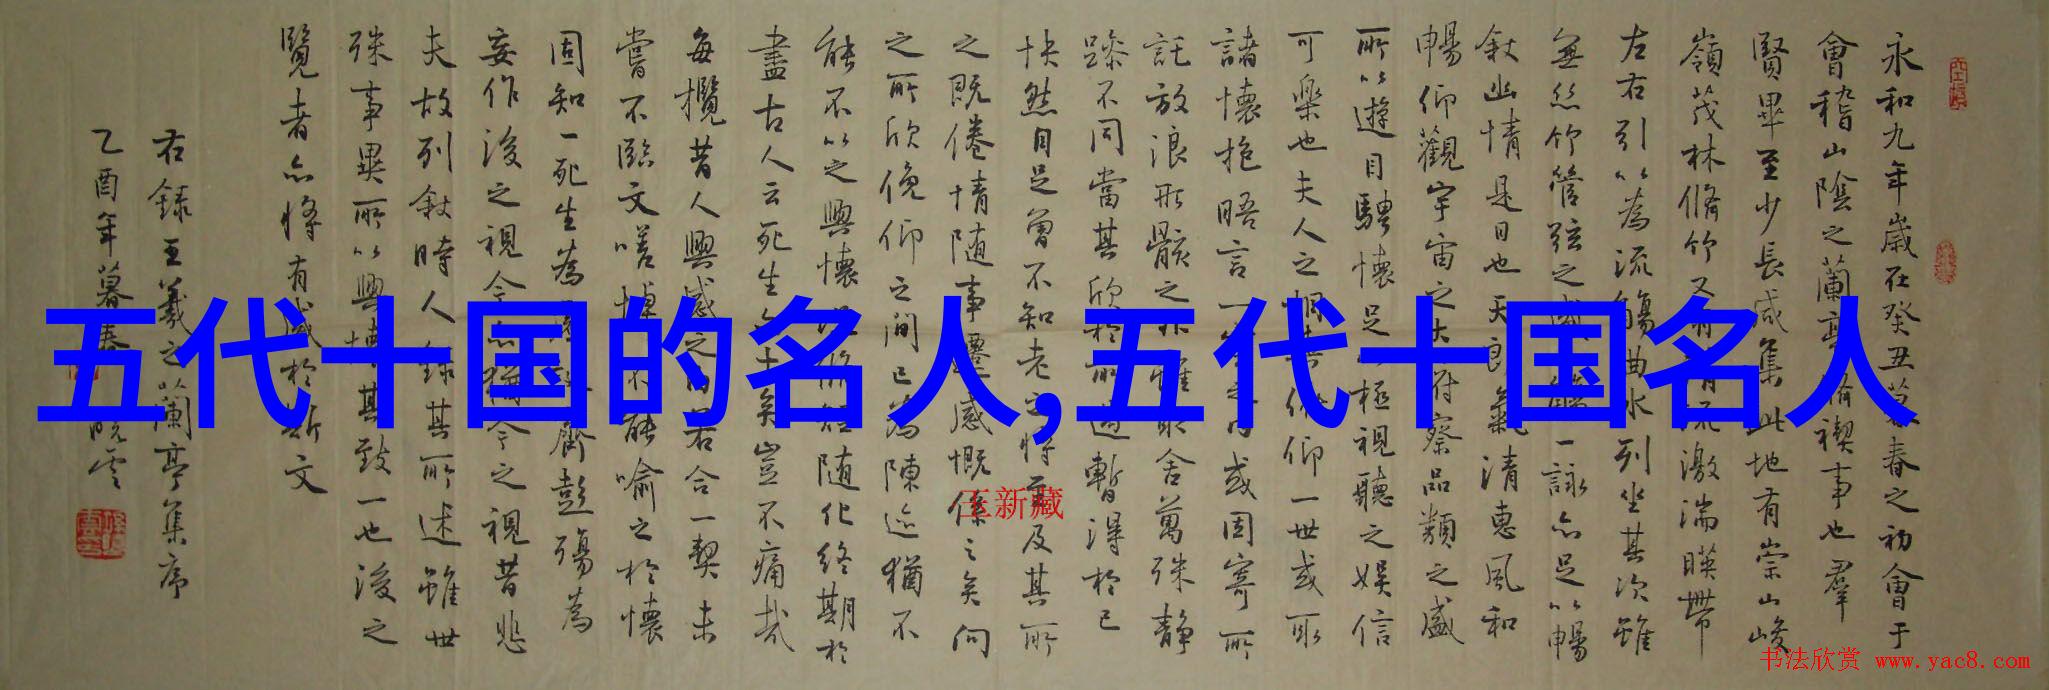 五代十国的名人,五代十国名人
永和九年歲在癸丑暮春之初會于
會稽山陰之蘭亭脩禊事也群
賢畢至少長咸集此地有崇山峻
嶺茂林脩竹又有清流激湍暎帶
左右引以為流觴曲水列坐其次雖
無絲竹管弦之盛一觴一詠亦足以暢
敘幽情是日也天朗氣清惠風和
暢仰觀宇宙之大俯察品類之盛
所以遊目騁懷足以極視聽之娛信
可樂也夫人之相與俯仰一世或取
諸懷抱晤言一室之內或因寄所
託放浪形骸之外雖趣舍萬殊靜
躁不同當其欣於所遇暫得於己
快然自足曾不知老之將至及其所
之既倦情随事遷感慨係之矣向
之所欣俛仰之間已為陳迹猶不
能不以之興懷況脩短随化終期於
盡古人云死生亦大矣豈不痛哉
每攬昔人興感之由若合一契未
嘗不臨文嗟悼不能喻之於懷
固知一死生為虛誕齊彭殤為
妄作後之視今亦猶今之視昔悲
夫故列敘時人錄其所述雖世
殊事異所以興懷其致一也後之
覽者亦將有感於斯文
右録王羲之蘭亭集序
乙酉年暮春曉雲
王新藏
书法欣赏 www.yac8.com